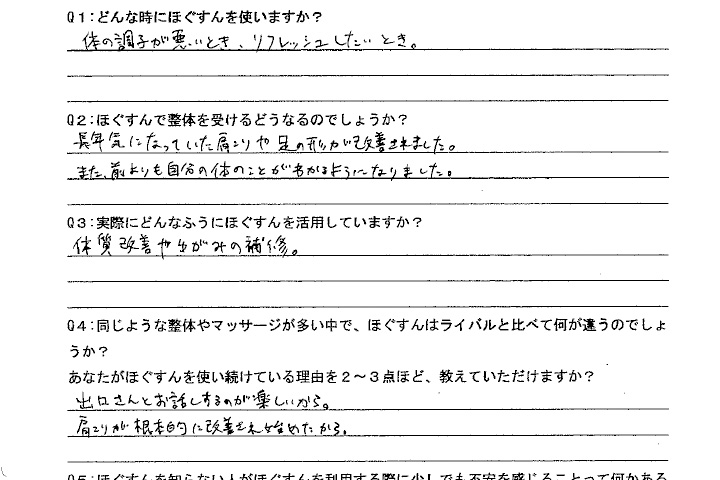 Q1:どんな時にほぐすんを使いますか？
体の調子が悪いとき、リフレッシュしたいとき。
Q2:ほぐすんで整体を受けるどうなるのでしょうか？
長年気になっていた肩こりや足の形が改善されました。
また、前よりも自分の体のことがわかるようになりました。
Q3:実際にどんなふうにほぐすんを活用していますか？
体質改善やゆがみの補修。
Q4:同じような整体やマッサージが多い中で、ほぐすんはライバルと比べて何が違うのでしょ
うか？
あなたがほぐすんを使い続けている理由を２～３点ほど、教えていただけますか？
出口さんとお話しするのが楽しいから。
肩こりが根本的に改善され始めたから。
Q5:ほぐすんを知らない人がほぐすんを利用する際に少しでも不安を感じることって何かある